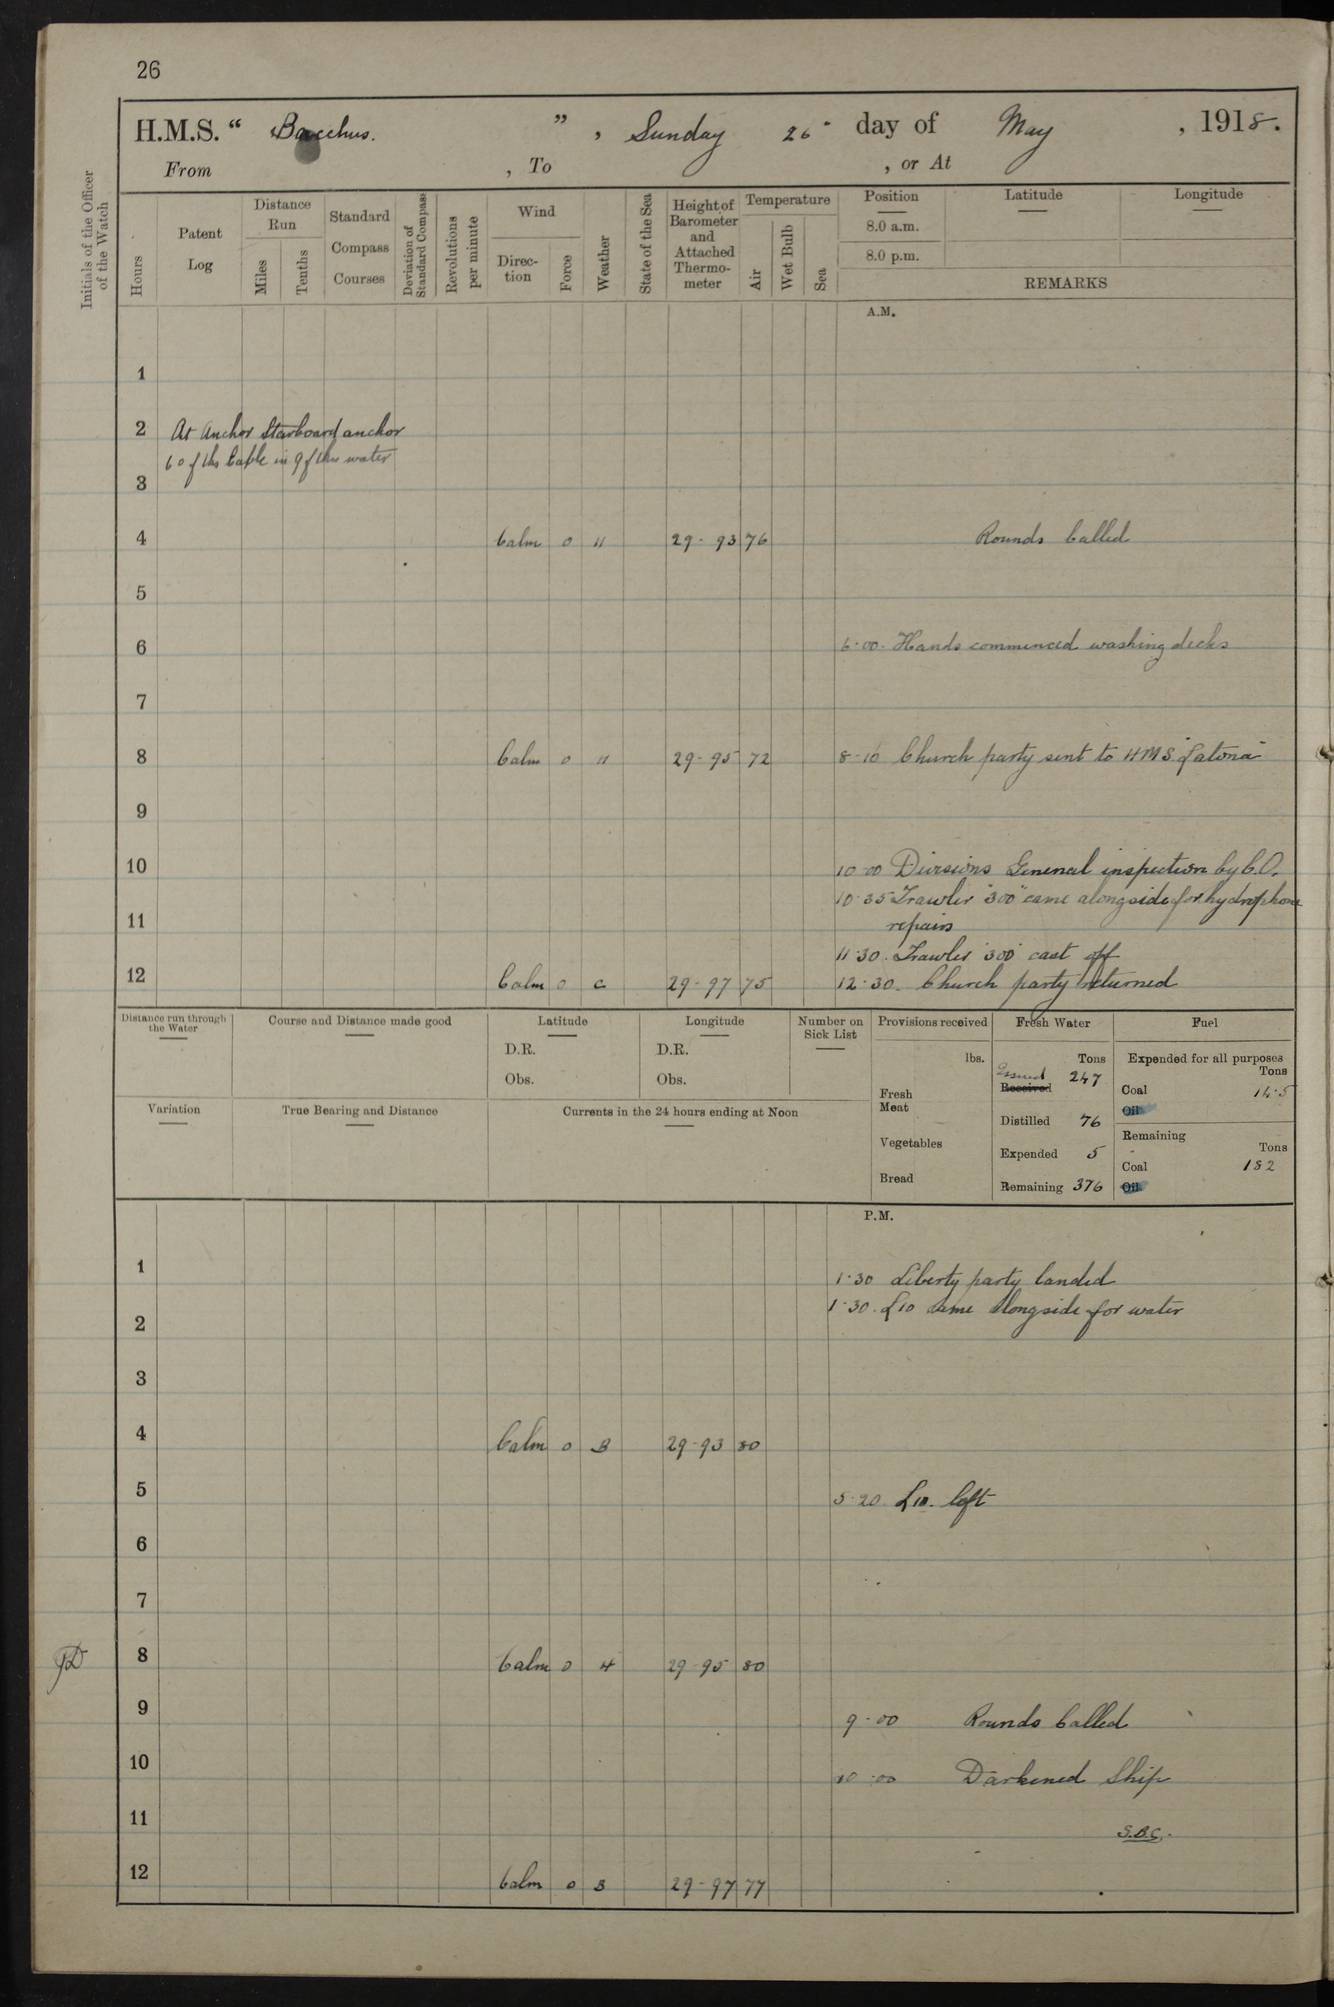 26
H.M.S. " Bacchus. " , Sunday 26" day of May , 1918.
From , To , or At
Initials of the Officer of the Watch
Hours
Patent Log
Distance Run
Miles
Tenths
Standard Compass Courses
Deviation of Standard Compass
Revolutions per minute
Wind
Direction
Force
Weather
State of the Sea
Height of Barometer and Attached Thermometer
Temperature
Air
Wet Bulb
Sea
Position
8.0 a.m.
8.0 p.m.
Latitude
Longitude
REMARKS
A.M.
1
2 At Anchor Starboard anchor
60 fths Cable in 9 fths water
3
4 Calm 0 " 29-93 76 Rounds Called
5
6 6-00. Hands commenced washing decks
7
8 Calm 0 " 29-95 72 8-10 Church party sent to HMS "Latona"
9
10 10-00 Divisions General inspection by C.O.
10-35 Trawler "300" came alongside for hydrophone
11 repairs
11-30. Trawler "300" cast off
12 Calm 0 c 29-97 75 12-30. Church party returned
Distance run through the Water
Course and Distance made good
Latitude
D.R.
Obs.
Longitude
D.R.
Obs.
Number on Sick List
Provisions received
lbs.
Fresh Meat
Vegetables
Bread
Fresh Water
Tons
Issued 247
Received
Distilled 76
Expended 5
Remaining 376
Fuel
Expended for all purposes
Tons
Coal 14.5
Oil
Remaining
Tons
Coal 182
Oil
Variation
True Bearing and Distance
Currents in the 24 hours ending at Noon
P.M.
1 1-30 Liberty party landed
1-30. L10 came alongside for water
2
3
4 Calm 0 B 29-93 80
5 5-20 L10. left
6
7
8 Calm 0 29-95 80
9 9-00 Rounds Called
10 10-00 Darkened Ship
11 S.B.C.
12 Calm 0 B 29-97 77